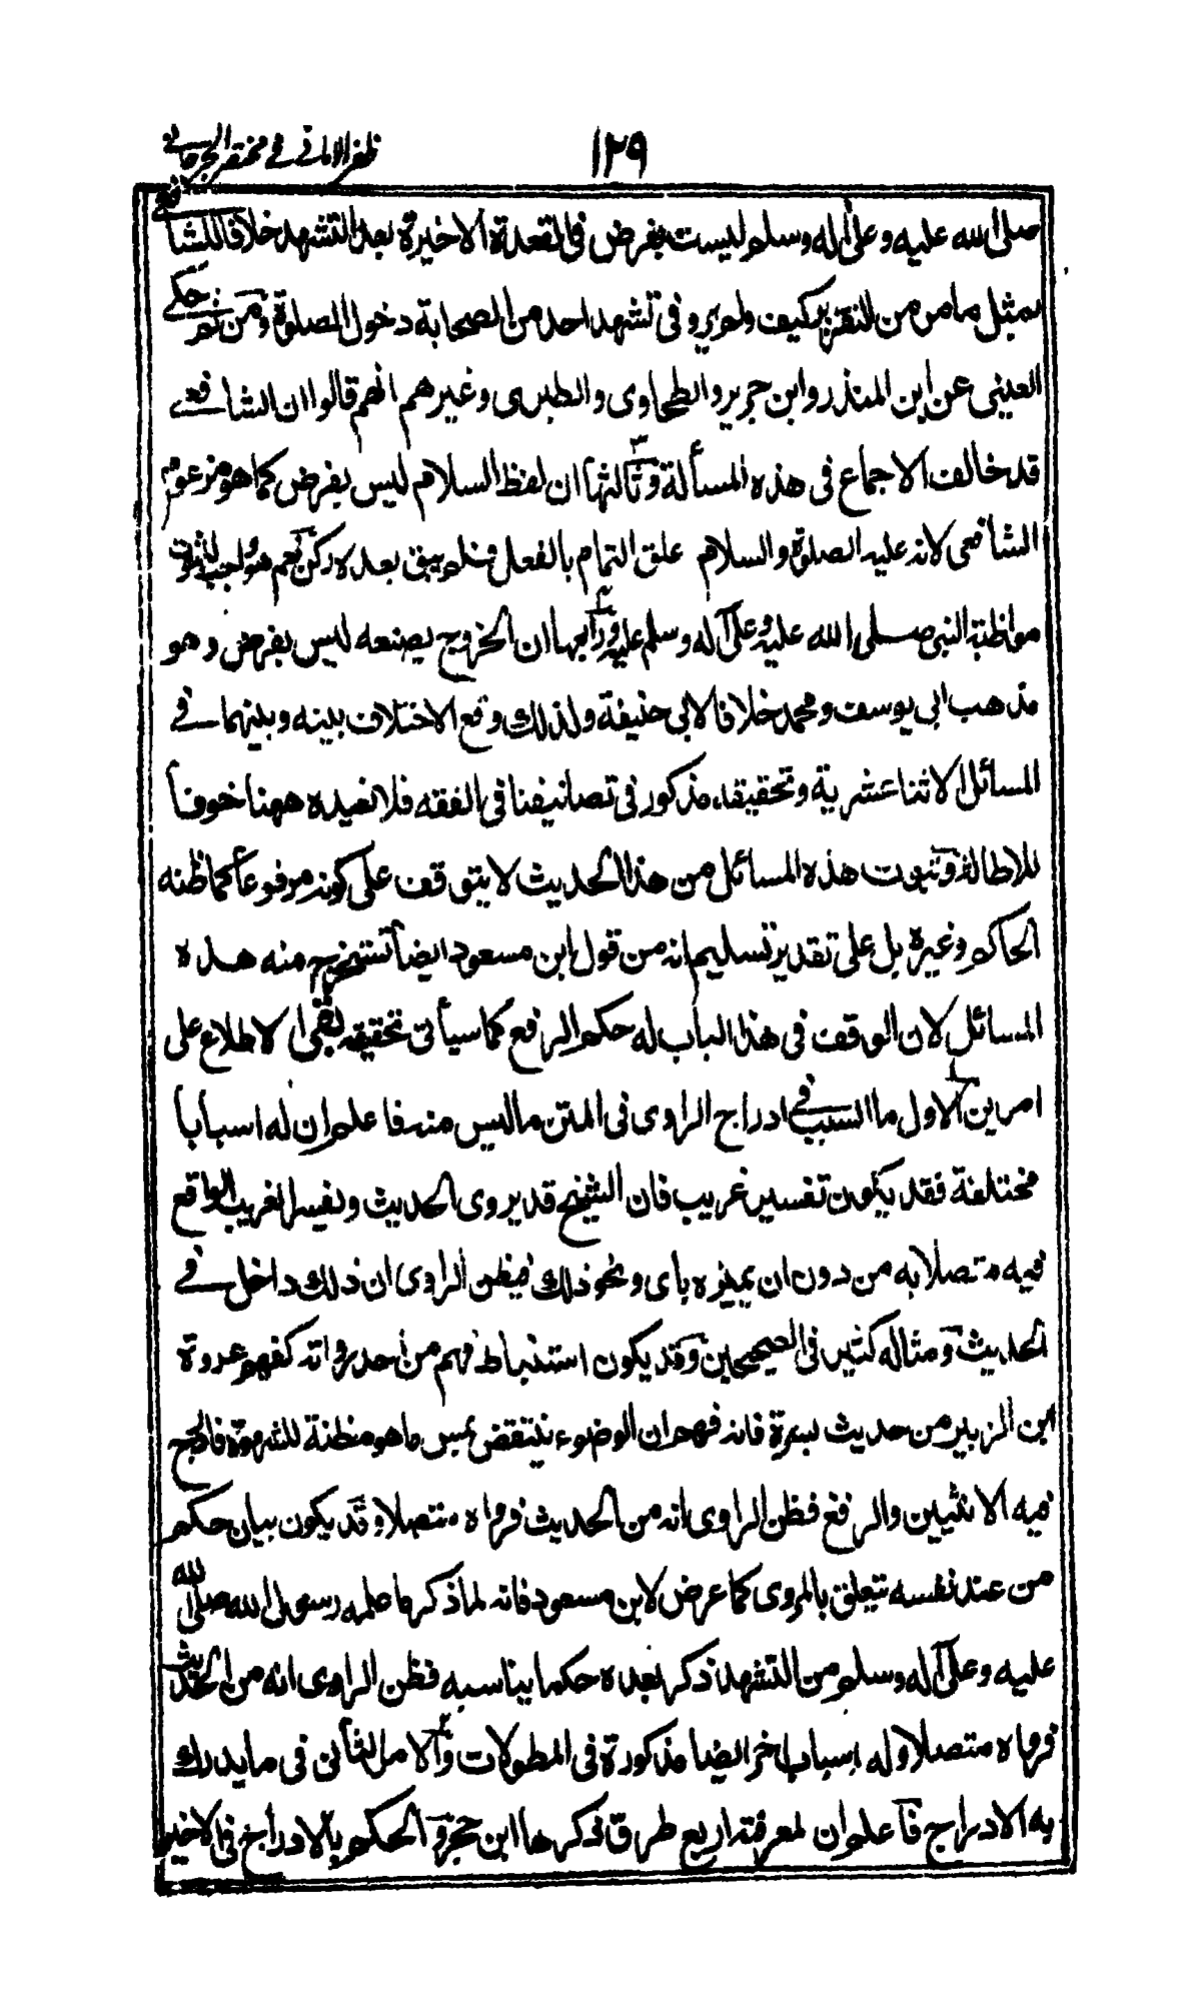 ١٢٩
ظفر الامانی فی مختصر الجرجانی
صلی الله علیه وعلی آله وسلم لیست بفرض فی القعدة الاخیرة بعد التشهد خلافا للشافعی
بمثل ما مر من التقریر کیف ولم یرو فی تشهد احد من الصحابة دخول الصلوة ومن ثم حکی
العینی عن ابن المنذر وابن جریر والطحاوی والطبری وغیرهم انهم قالوا ان الشافعی
قد خالف الاجماع فی هذه المسألة وثالثها ٣ ان لفظ السلام لیس بفرض کما هو مزعوم
الشافعی لانه علیه الصلوة والسلام علق التمام بالفعل فلم یبق بعده رکن نعم هو واجب لثبوت
مواظبة النبی صلی الله علیه وعلی آله وسلم علیه ورابعها ٤ ان الخروج بصنعه لیس بفرض وهو
مذهب ابی یوسف ومحمد خلافا لابی حنیفة ولذلك وقع الاختلاف بینه وبینهما فی
المسائل الاثنا عشریة وتحقیقه مذکور فی تصانیفنا فی الفقه فلا نعیده ههنا خوفا
للاطالة وثبوت هذه المسائل من هذا الحدیث لا یتوقف علی کونه مرفوعا کما ظنه
الحاکم وغیره بل علی تقدیر تسلیم انه من قول ابن مسعود ایضا تستخرج منه هذه
المسائل لان الوقف فی هذا الباب له حکم الرفع کما سیأتی تحقیقه بقی الاطلاع علی
امرین الاول ما السبب فی ادراج الراوی فی المتن ما لیس منه فاعلم ان له اسبابا
مختلفة فقد یکون تفسیر غریب فان الشیخ قد یروی الحدیث ویفسر الغریب الواقع
فیه متصلا به من دون ان یمیزه بای ونحو ذلك فیظن الراوی ان ذلك داخل فی
الحدیث ومثاله کثیر فی الصحیحین وقد یکون استنباط فهم من احد رواته کفهم عروة
ابن الزبیر من حدیث بسرة فانه فهم ان الوضوء ینتقض بمس ما هو مظنة للشهوة فادرج
فیه الانثیین والرفغ فظن الراوی انه من الحدیث فرواه متصلا وقد یکون بیان حکم
من عند نفسه یتعلق بالمروی کما عرض لابن مسعود فانه لما ذکر ما علمه رسول الله صلی الله
علیه وعلی آله وسلم من التشهد ذکر بعده حکما یناسبه فظن الراوی انه من الحدیث
فرواه متصلا وله اسباب اخر ایضا مذکورة فی المطولات والامر الثانی فی ما یدرك
به الادراج فاعلم ان لمعرفته اربع طرق ذکرها ابن حجر والحکم بالادراج فی الاخیر